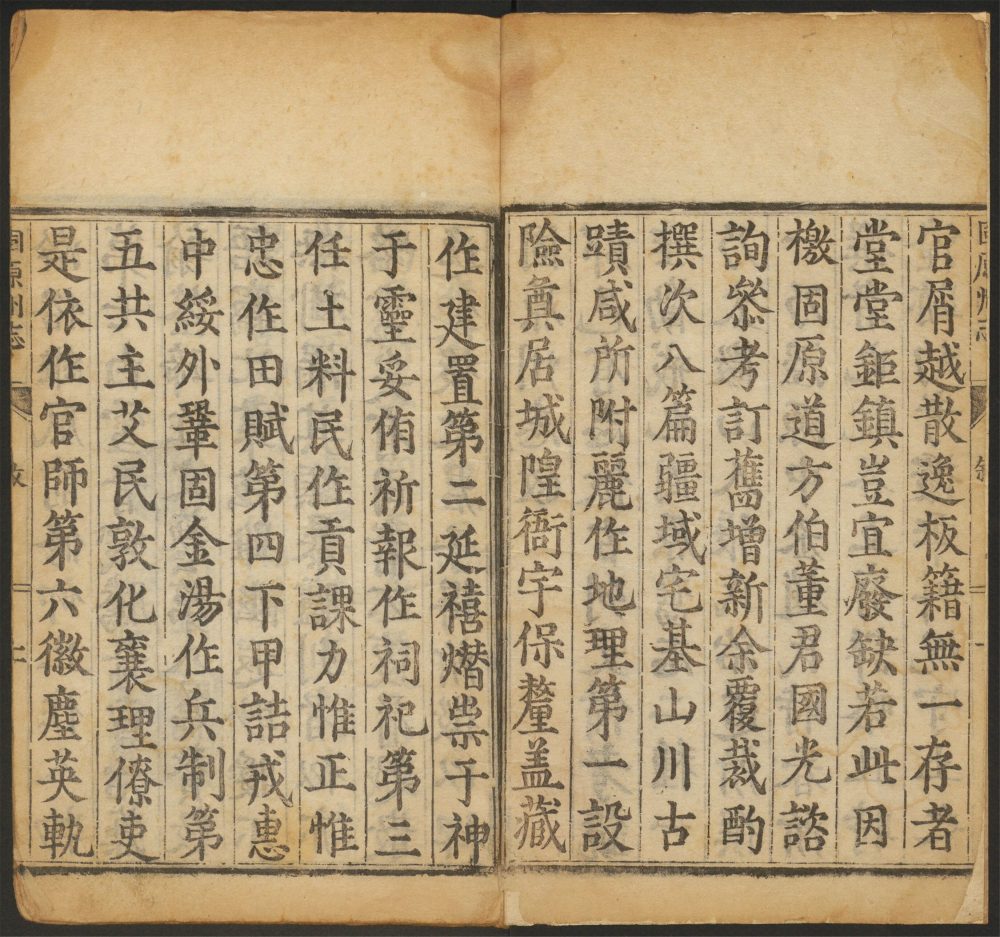 官屑越散逸板籍無一存者
堂堂鉅鎮豈宜廢缺若此因
檄固原道方伯董君國光諮
詢叅考訂舊增新余覆裁酌
撰次八篇疆域宅基山川古
蹟咸所附麗作地理第一設
險奠居城隍衙宇保釐盖藏
作建置第二延禧熸祟于神
于靈妥侑祈報作祠祀第三
任土料民作貢課力惟正惟
忠作田賦第四下甲詰戎惠
中綏外鞏固金湯作兵制第
五共主艾民敦化襄理僚吏
是依作官師第六徽塵英軌
固原州志